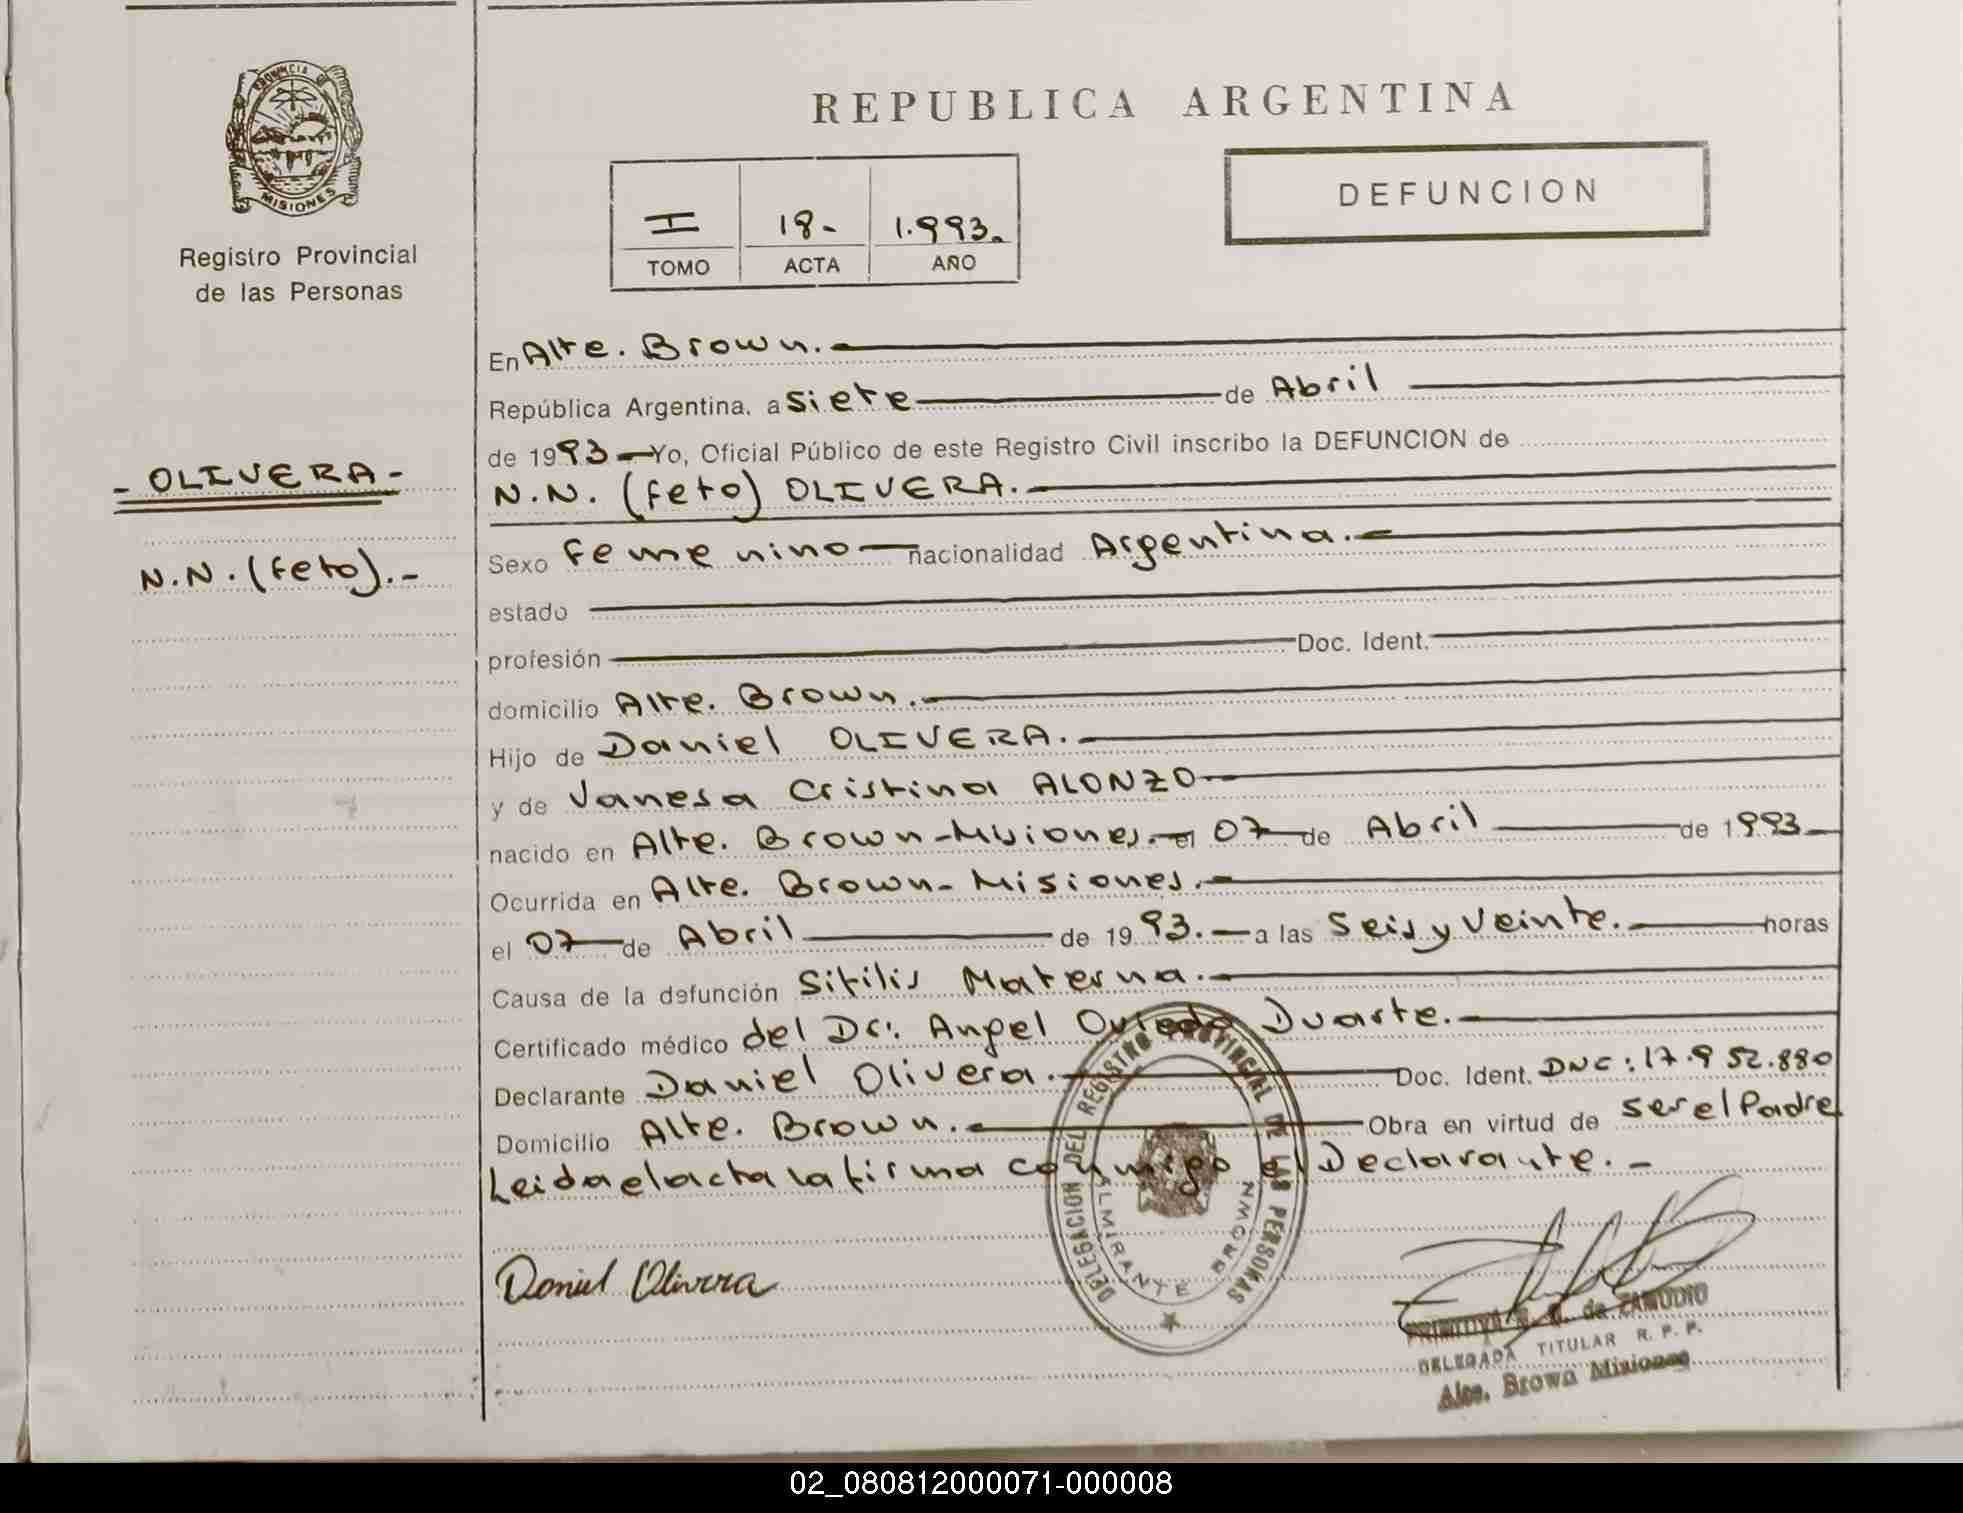 PROVINCIA DE
MISIONES
Registro Provincial
de las Personas
- OLIVERA -
N.N. (feto).-
REPUBLICA ARGENTINA
I 18- 1.993.
TOMO ACTA AÑO
DEFUNCION
En Alte. Brown.
República Argentina, a siete de Abril
de 1993 Yo, Oficial Público de este Registro Civil inscribo la DEFUNCION de
N.N. (feto) OLIVERA.
Sexo Femenino nacionalidad Argentina.
estado
profesión Doc. Ident.
domicilio Alte. Brown.
Hijo de Daniel OLIVERA.
y de Vanesa Cristina ALONZO
nacido en Alte. Brown-Misiones. el 07 de Abril de 1993
Ocurrida en Alte. Brown-Misiones.
el 07 de Abril de 1993. a las Seis y Veinte. horas
Causa de la defunción Sifilis Materna.
Certificado médico del Dr: Angel Oviedo Duarte.
Declarante Daniel Olivera. Doc. Ident. DNC: 17.952.880
Domicilio Alte. Brown. Obra en virtud de ser el Padre
Leida el acta la firma conmigo el Declarante. -
DELEGACION DEL REGISTRO PROVINCIAL DE LAS PERSONAS
ALMIRANTE BROWN
Daniel Olivera
PRIMITIVA de ZAMUDIO
DELEGADA TITULAR R. P. P.
Alte. Brown Misiones
02_080812000071-000008